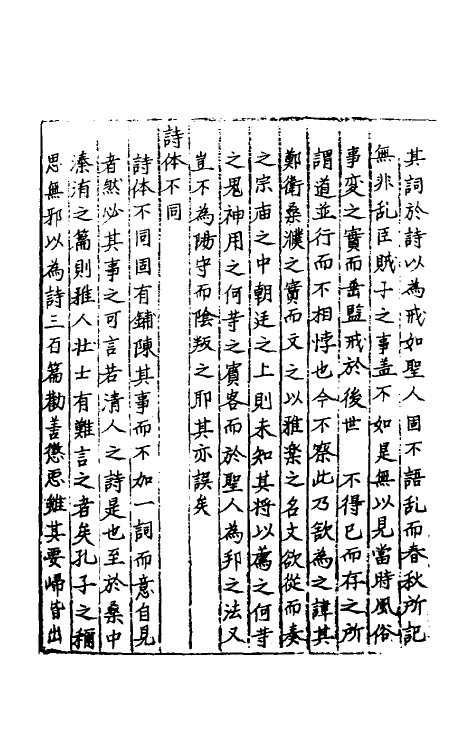 其詞於詩以為戒如聖人固不語乱而春秋所記
無非乱臣賊子之事盖不如是無以見當時風俗
事変之實而垂監戒於後世 不得已而存之所
謂道並行而不相悖也今不察此乃欲為之諱其
鄭衛桑濮之實而文之以雅楽之名又欲從而奏
之宗庙之中朝廷之上則未知其将以薦之何等
之鬼神用之何等之賓客而於聖人為邦之法又
豈不為陽守而陰叛之耶其亦誤矣
詩体不同
詩体不同固有鋪陳其事而不加一詞而意自見
者然必其事之可言者若清人之詩是也至於桑中
溱洧之篇則雅人壮士有難言之者矣孔子之稱
思無邪以為詩三百篇勸善懲悪雖其要帰皆出